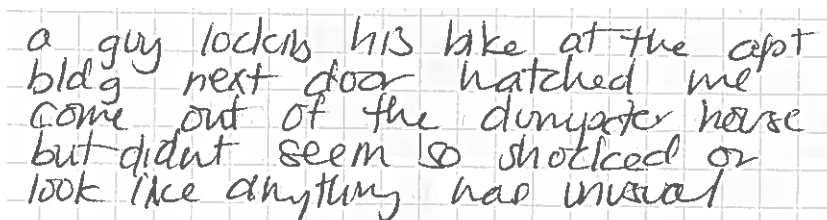 a guy locking his bike at the apt
bldg next door watched me
come out of the dumpster house
but didnt seem so shocked or
look like anything was unusual